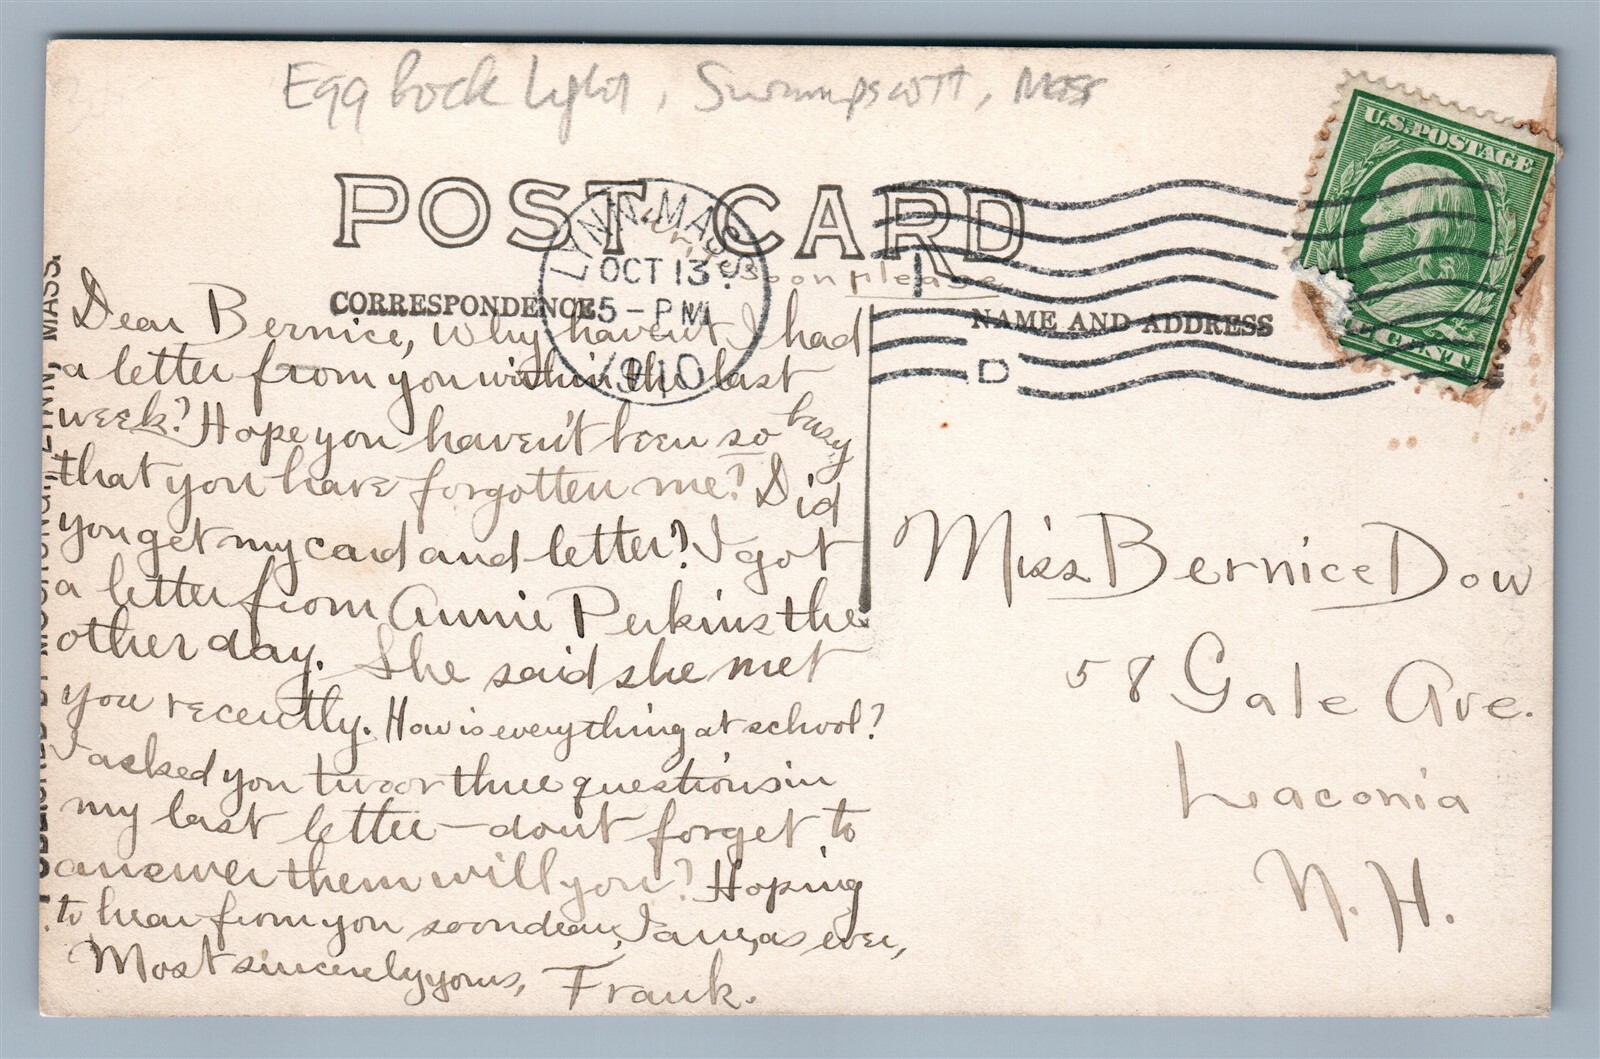 Egg Rock Light, Swampscott, Mass
POST CARD
U.S. POSTAGE
LYNN, MASS.
OCT 13
5 - PM
1910
D
Write soon please
CORRESPONDENCE
NAME AND ADDRESS
Dear Bernice, Why haven't I had
a letter from you within the last
week? Hope you haven't been so busy
that you have forgotten me? Did
you get my card and letter? I got
a letter from Annie Perkins the
other day. She said she met
you recently. How is everything at school?
I asked you two or three questions in
my last letter - dont forget to
answer them will you? Hoping
to hear from you soon dear, I am, as ever,
Most sincerely yours, Frank.
Miss Bernice Dow
58 Gale Ave.
Laconia
N. H.
PUBLISHED BY LYNN, MASS.